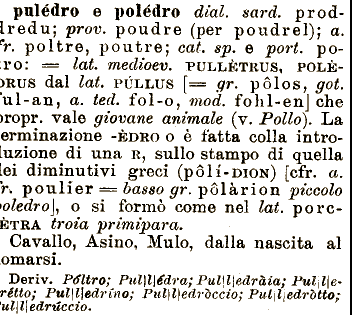 pulédro e polédro dial. sard. prod-
dredu; prov. poudre (per poudrel); a.
fr. poltre, poutre; cat. sp. e port. po-
tro: = lat. medioev. PULLÈTRUS, POLÈ-
DRUS dal lat. PÚLLUS [= gr. pôlos, got.
ful-an, a. ted. fol-o, mod. fohl-en] che
propr. vale giovane animale (v. Pollo). La
terminazione -ÈDRO o è fatta colla intro-
duzione di una R, sullo stampo di quella
dei diminutivi greci (pôlí-DION) [cfr. a.
fr. poulier = basso gr. pôlàrion piccolo
poledro], o si formò come nel lat. porc-
ÈTRA troia primipara.
Cavallo, Asino, Mulo, dalla nascita al
domarsi.
Deriv. Póltro; Pul[l]édra; Pul[l]edràia; Pul[l]e-
drétto; Pul[l]edríno; Pul[l]edròccio; Pul[l]edròtto;
Pul[l]edrúccio.